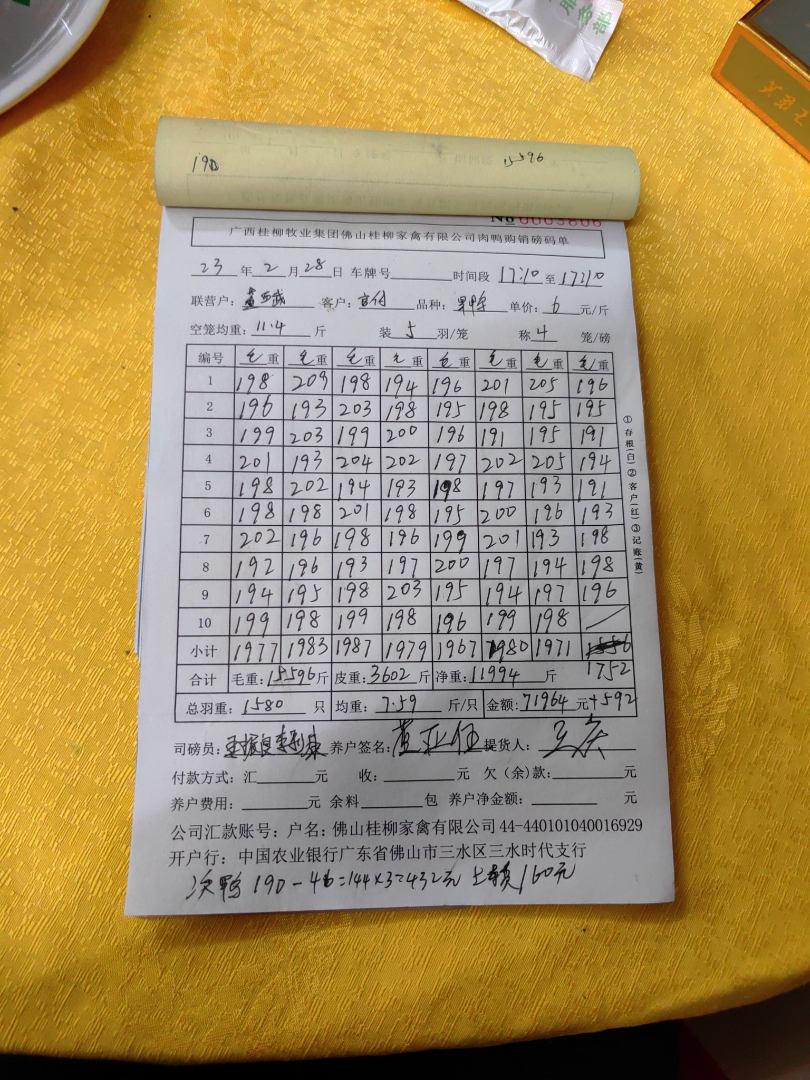 190 15596
No 0003806
广西桂柳牧业集团佛山桂柳家禽有限公司肉鸭购销磅码单
23 年 2 月 28 日 车牌号 时间段 17:10 至 17:10
联营户: 客户: 品种: 单价: 6 元/斤
空笼均重: 11.4 斤 装 5 羽/笼 称 4 笼/磅
编号 毛重 毛重 毛重 毛重 毛重 毛重 毛重 毛重
1 198 209 198 194 196 201 205 196
2 196 193 203 198 195 198 195 195
3 199 203 199 200 196 191 195 191
4 201 193 204 202 197 202 205 194
5 198 202 194 193 198 197 193 191
6 198 198 201 198 195 200 196 193
7 202 196 198 196 199 201 193 198
8 192 196 193 197 200 197 194 198
9 194 195 198 203 195 194 197 196
10 199 198 199 198 196 199 198 /
小计 1977 1983 1987 1979 1967 1980 1971
1752
合计 毛重: 15596 斤 皮重: 3602 斤 净重: 11994 斤
总羽重: 1580 只 均重: 7.59 斤/只 金额: 71964 元+592
司磅员: 养户签名: 提货人:
付款方式: 汇 元 收: 元 欠(余)款: 元
养户费用: 元 余料 包 养户净金额: 元
公司汇款账号: 户名: 佛山桂柳家禽有限公司 44-440101040016929
开户行: 中国农业银行广东省佛山市三水区三水时代支行
次鸭 190-46=144×3=432元 160元
①存根(白)②客户(红)③记账(黄)